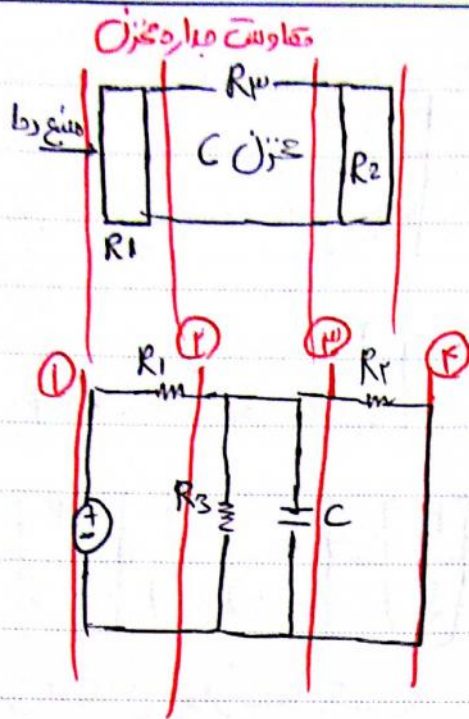 مقاومت جداره مخزن
R۳
منبع دما
مخزن C
R2
R1
① ② ③ ④
R1
R۲
R3
+
-
C